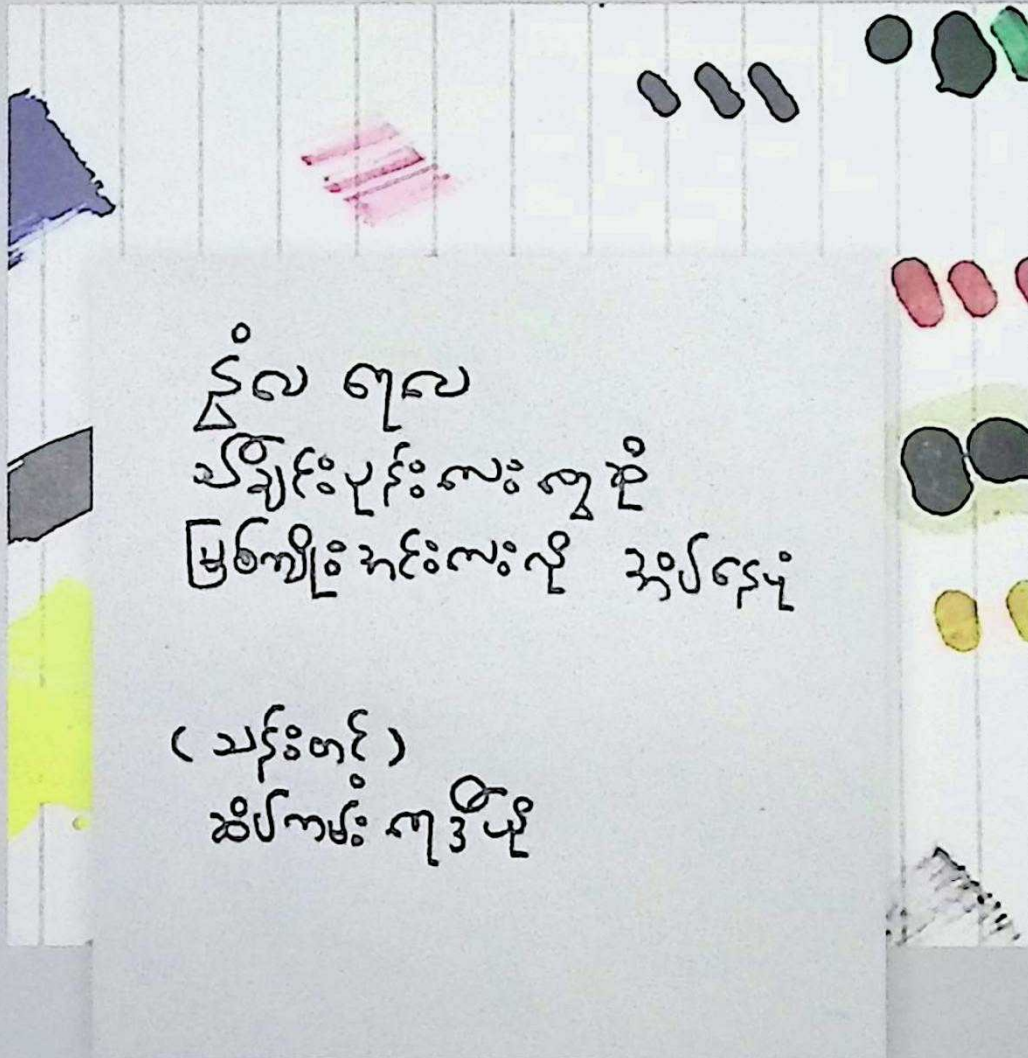 နွံလ ရေလ
သီချင်းပုန်းလေး ရွေဆို
မြစ်ကျိုးအင်းလေးလို အိပ်နေပုံ
(သန်းတင့်)
ဆိပ်ကမ်း ရေဒီယို